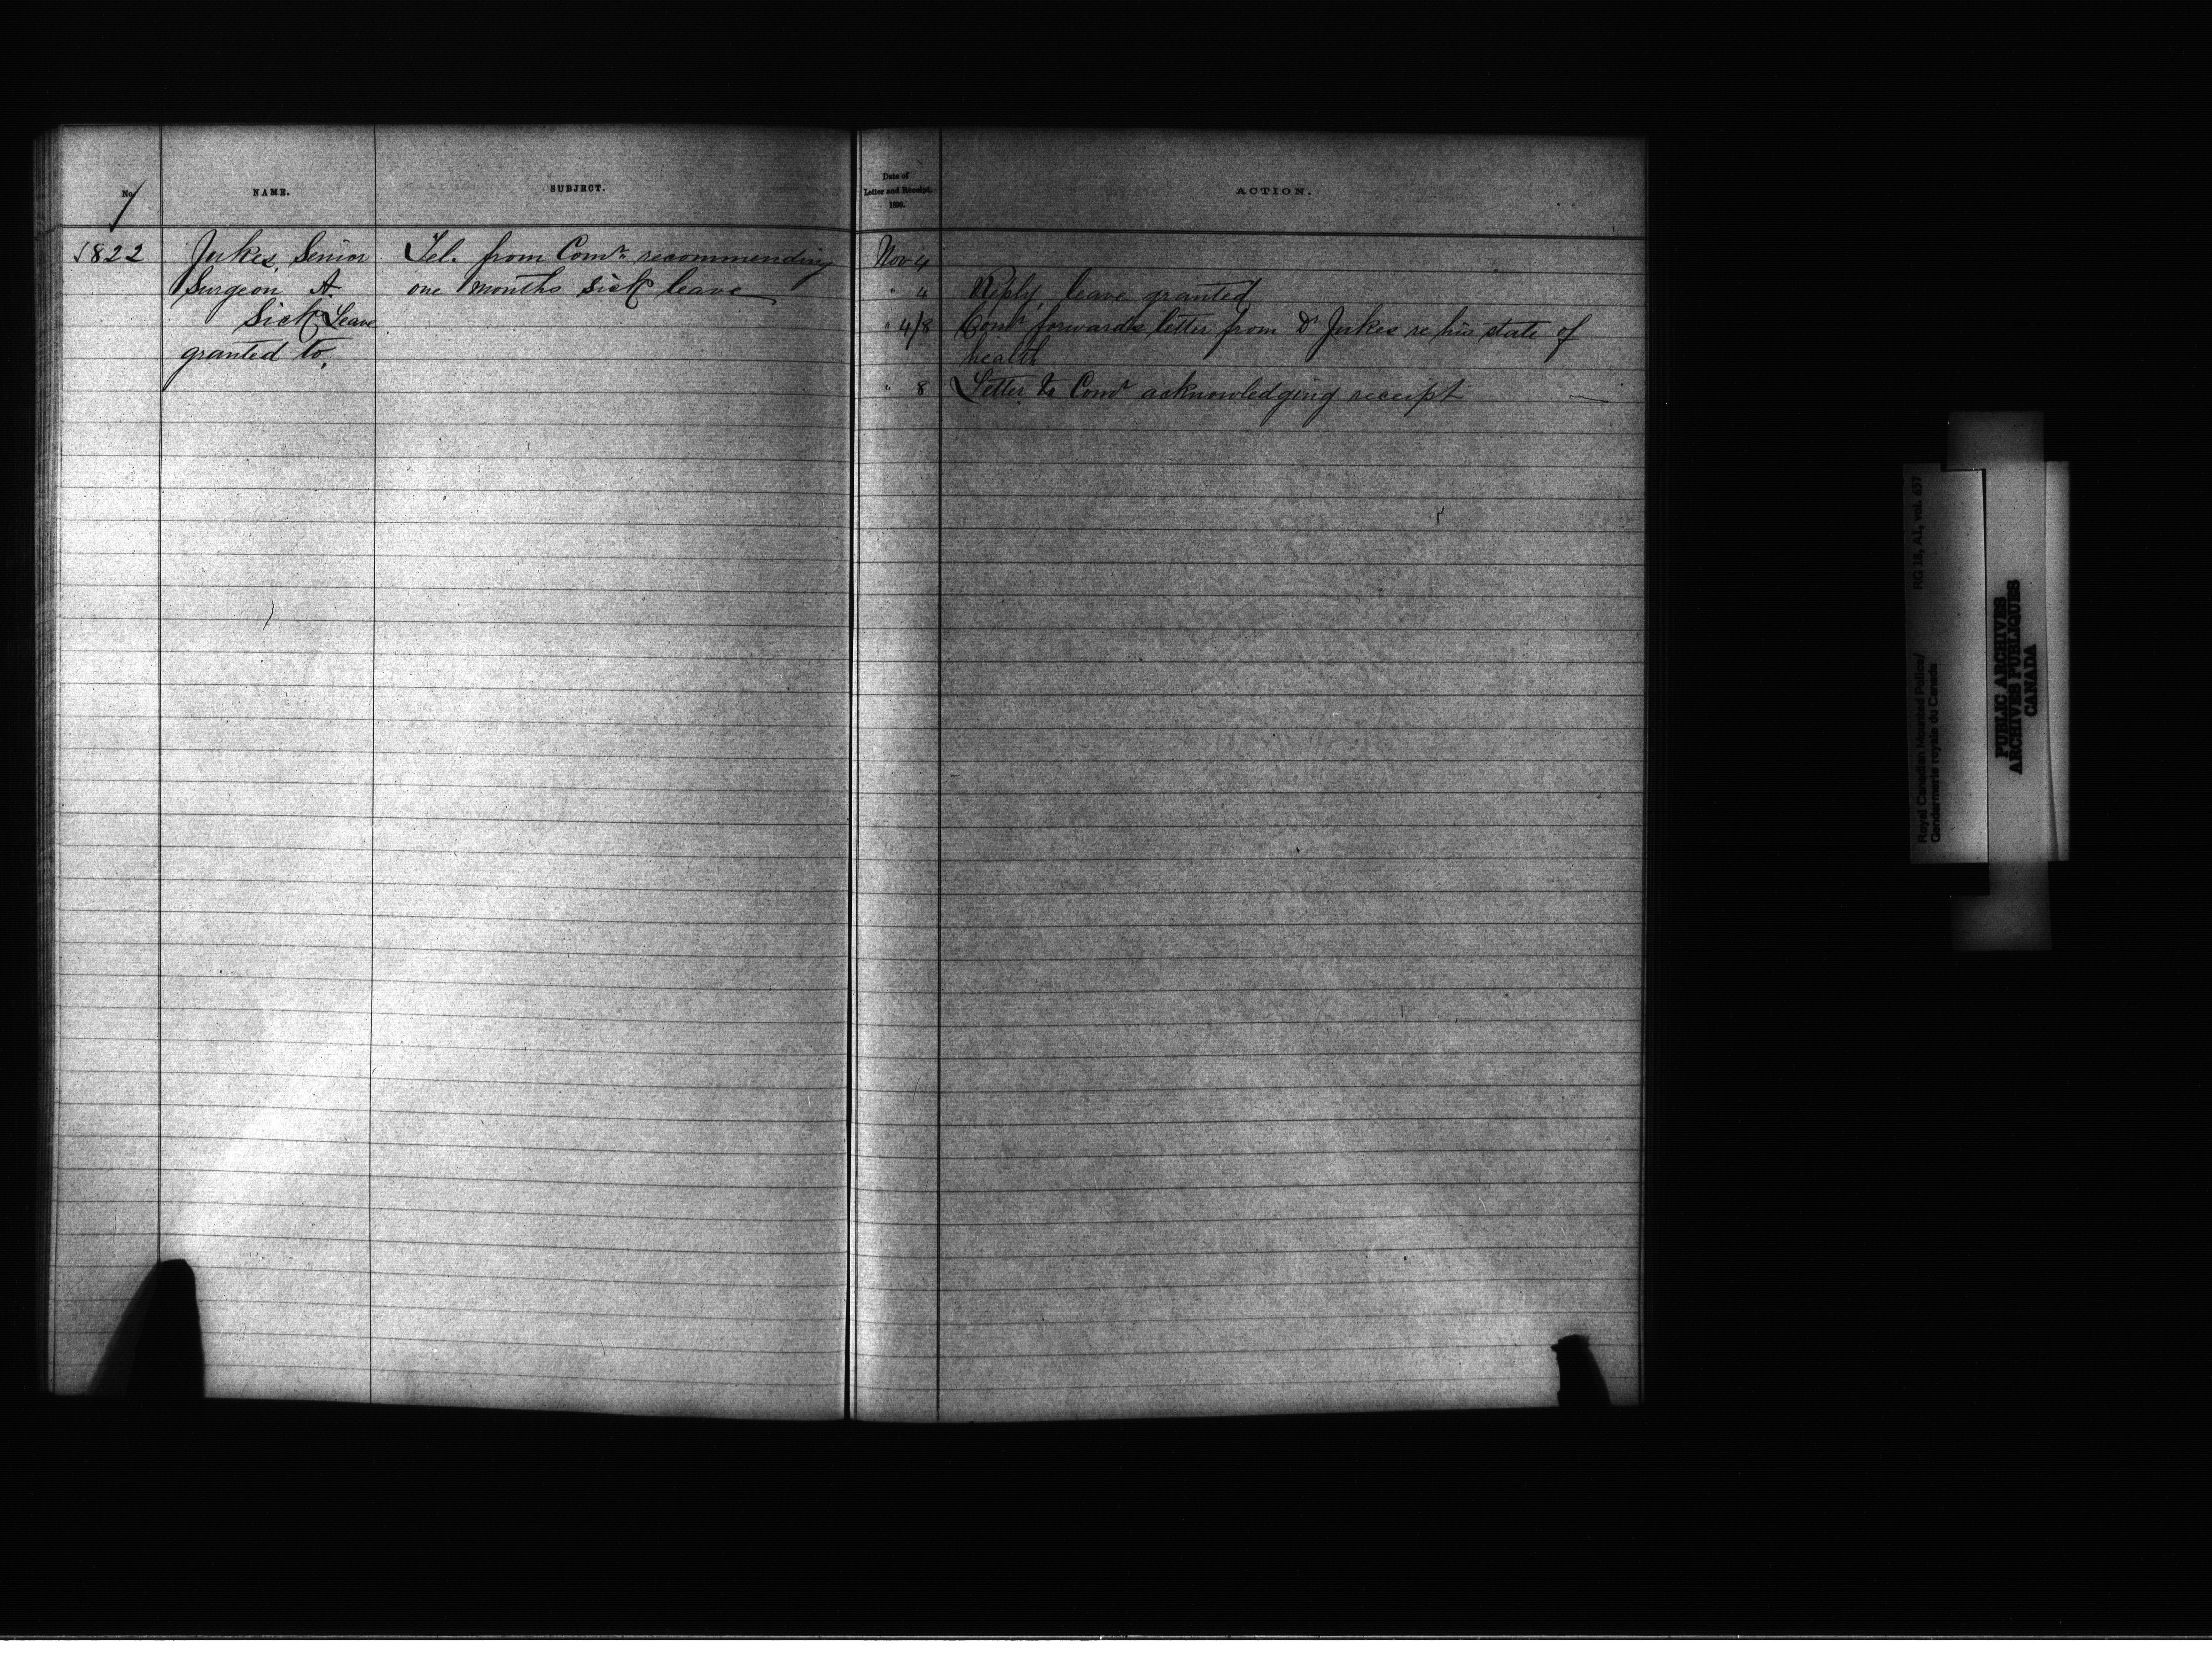 No.
NAME.
SUBJECT.
Date of
Letter and Receipt.
1890.
ACTION.
1822
Jukes, Senior
Surgeon A.
Sick Leave
granted to,
Tel. from Comr. recommending
one months sick leave
Nov 4
" 4 Reply, leave granted
" 4/8 Comr forwards letter from Dr Jukes re his state of
health
" 8 Letter to Comr acknowledging receipt
Royal Canadian Mounted Police/ RG 18, A1, vol. 657
Gendarmerie royale du Canada
PUBLIC ARCHIVES
ARCHIVES PUBLIQUES
CANADA